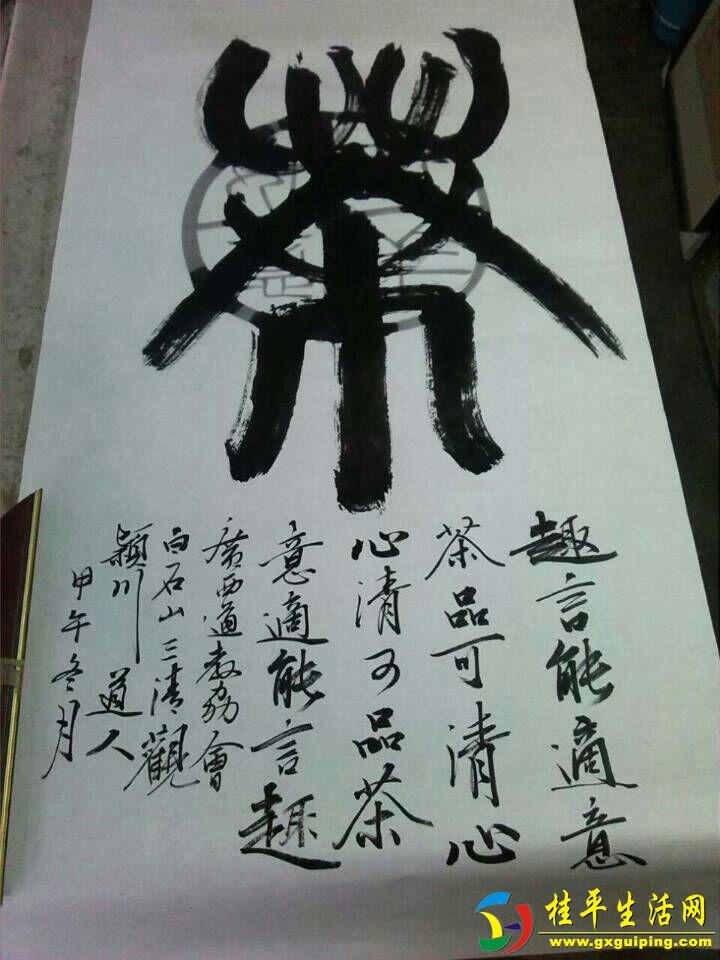 茶
趣言能適意
茶品可清心
心清可品茶
意適能言趣
廣西道教協會
白石山三清觀
穎川道人
甲午冬月
桂平生活网
www.gxguiping.com